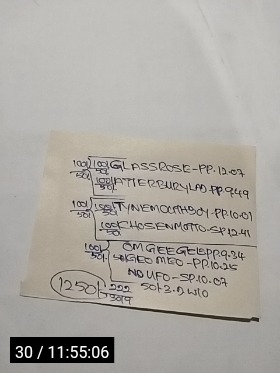 100/ 100/ GLASSROSE-PP.12.07
50/ 100/ ATTERBURYLAD PP.9.49
100/ TYNEMOUTHBOY-PP.10.01
50/ 100/ CHOSENMOTTO-SP.12.41
100/ OMGEEGEE PP.9.34
50/ NGEOMEO-PP.10.25
NDUFO-SP.10.07
1250/- 222 50/-3.D W10
3019
30 / 11:55:06